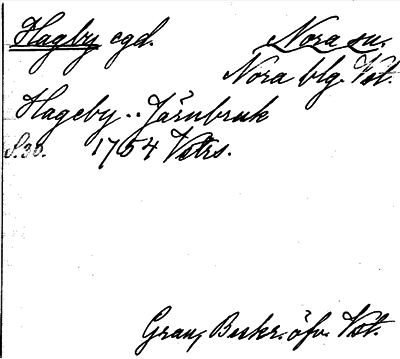 Hagby egd. Nora sn.
Nora blg. Vst.
Hageby .. Järnbruk
S. 30. 1754 Vstrs.
Grau, Beskr. öfv. Vst.